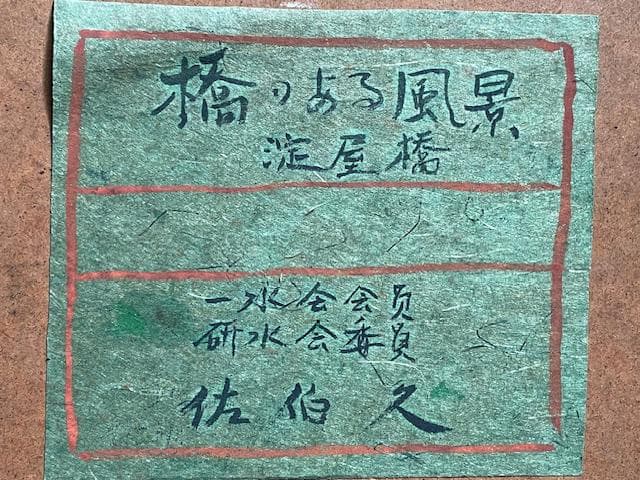 橋のある風景
淀屋橋
一水会会员
研水会委員
佐伯久